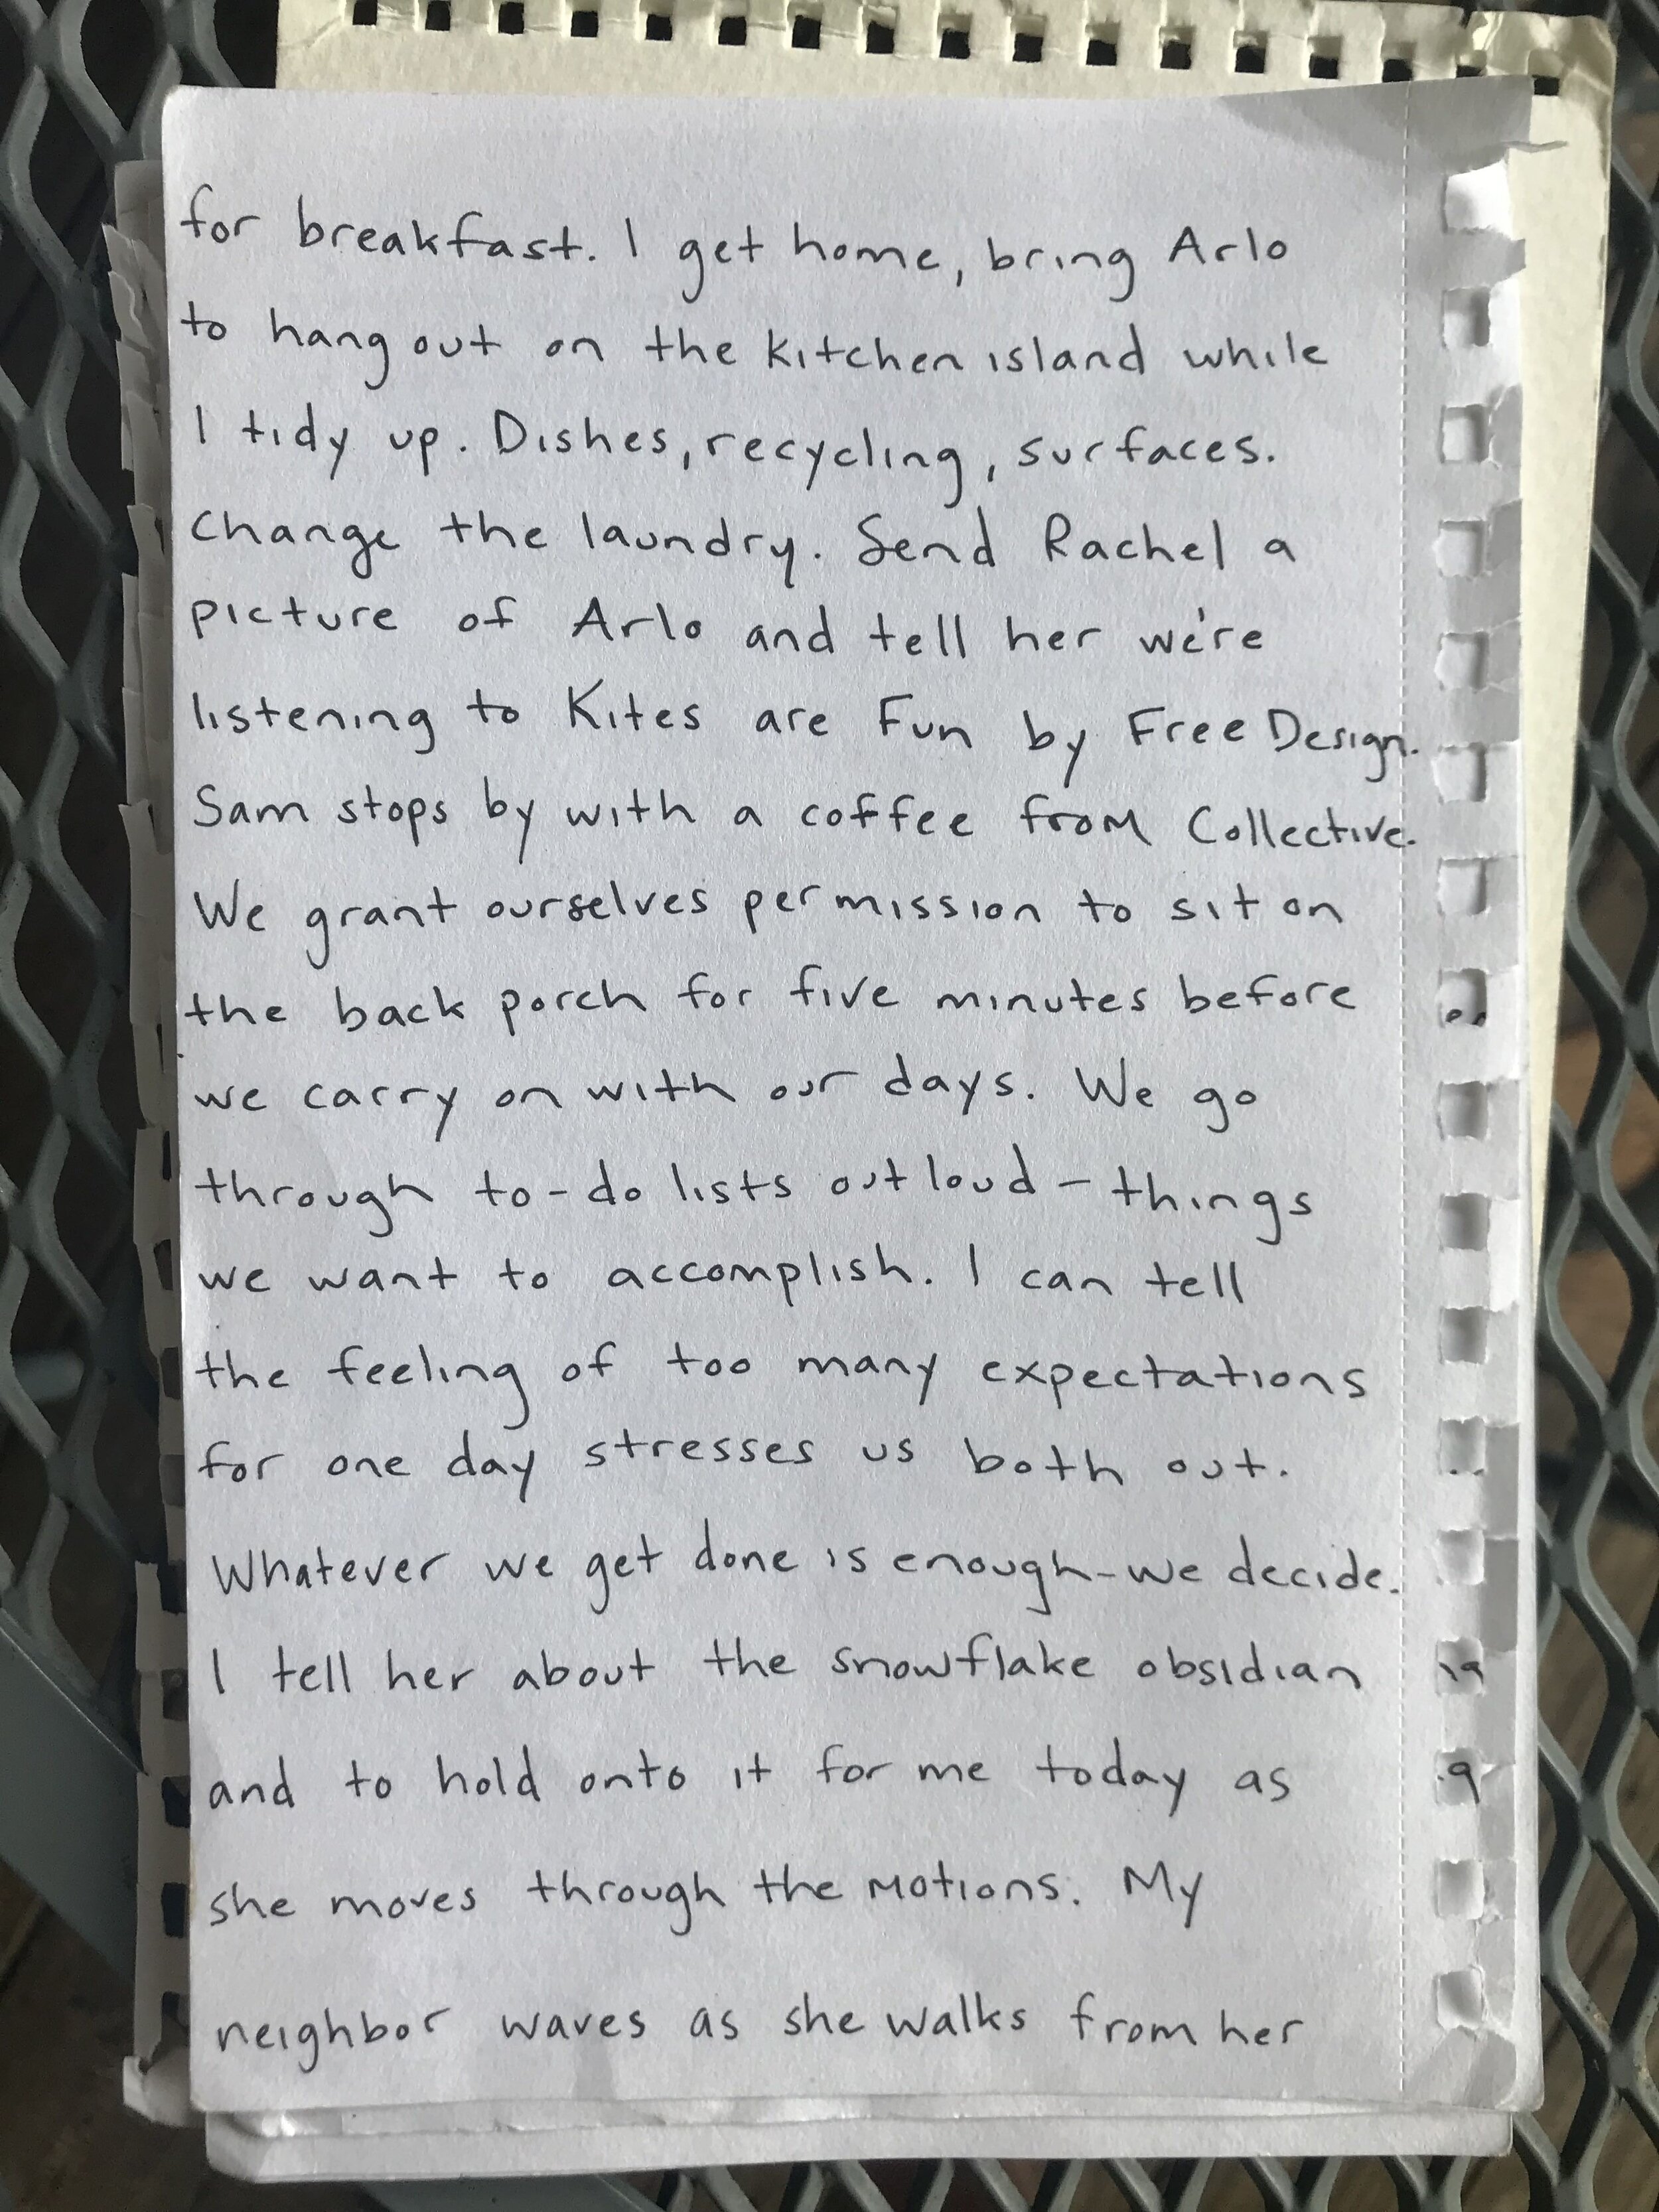 for breakfast. I get home, bring Arlo
to hang out on the kitchen island while
I tidy up. Dishes, recycling, surfaces.
Change the laundry. Send Rachel a
picture of Arlo and tell her we're
listening to Kites are Fun by Free Design.
Sam stops by with a coffee from Collective.
We grant ourselves permission to sit on
the back porch for five minutes before
we carry on with our days. We go
through to-do lists out loud - things
we want to accomplish. I can tell
the feeling of too many expectations
for one day stresses us both out.
Whatever we get done is enough - we decide.
I tell her about the snowflake obsidian
and to hold onto it for me today as
she moves through the motions. My
neighbor waves as she walks from her